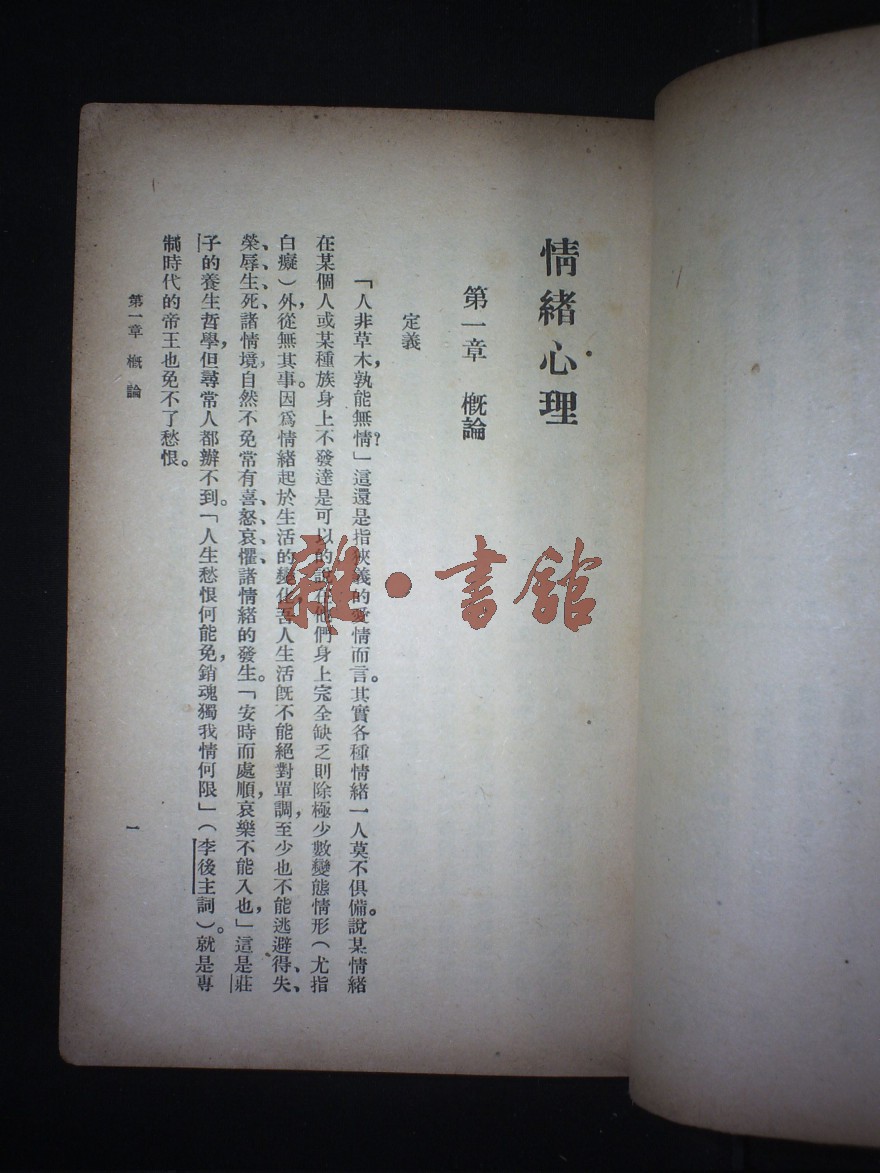 情緒心理
第一章 概論
定義
「人非草木，孰能無情？」這還是指狹義的愛情而言。其實各種情緒一人莫不俱備。說某情緒
在某個人或某種族身上不發達是可以的說在他們身上完全缺乏則除極少數變態情形（尤指
白癡）外，從無其事。因爲情緒起於生活的變化，吾人生活旣不能絕對單調，至少也不能逃避得、失、
榮、辱、生、死、諸情境，自然不免常有喜、怒、哀、懼、諸情緒的發生。「安時而處順，哀樂不能入也，」這是莊
子的養生哲學，但尋常人都辦不到。「人生愁恨何能免，銷魂獨我情何限」（李後主詞）。就是專
制時代的帝王也免不了愁恨。
第一章 概論
一
雜·書館